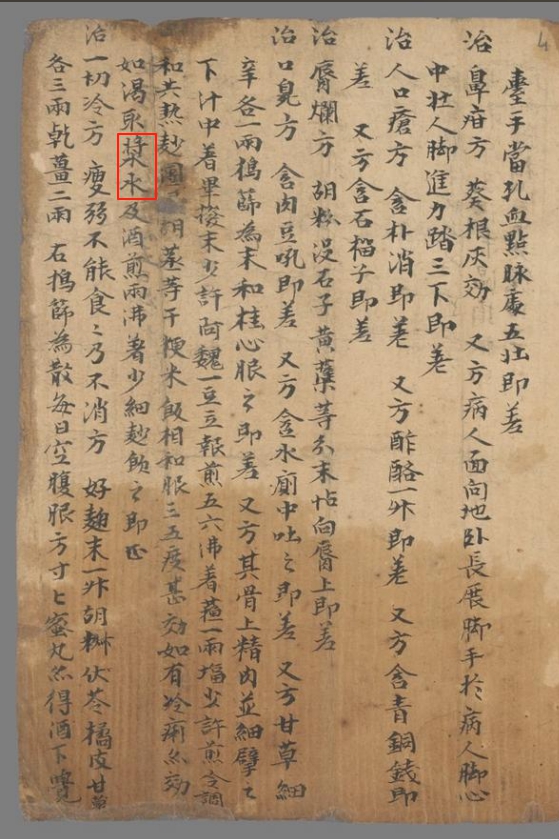 臺手當孔血點脉處五壯即差
治鼻疳方 葵根灰効 又方病人面向地卧長展脚手於病人脚心
中壯人脚進力踏三下即差
治人口瘡方 含朴消即差 又方酢酪一升即差 又方含青銅錢即
差 又方含石榴子即差
治脣爛方 胡粉没石子黄蘗等分末怗向脣上即差
治口臭方 含肉豆吼即差 又方含水廁中吐之即差 又方甘草細
辛各一兩擣篩為末和桂心服之即差 又方其骨上精肉並細擘之
下汁中着畢撥末少許阿魏一豆豆報煎五六沸着葅一兩塩少許煎令調
和共熱麨 胡荽芋干粳米飯相和服三五度甚効如有冷痢亦効
如渴取漿水及酒煎兩沸着少細麨飲之即止
治一切冷方 瘦弱不能食之乃不消方 好麹末一升胡椒伏苓橘皮甘草
各三兩乹薑二兩 右擣篩為散每日空腹服方寸匕蜜丸亦得酒下覺